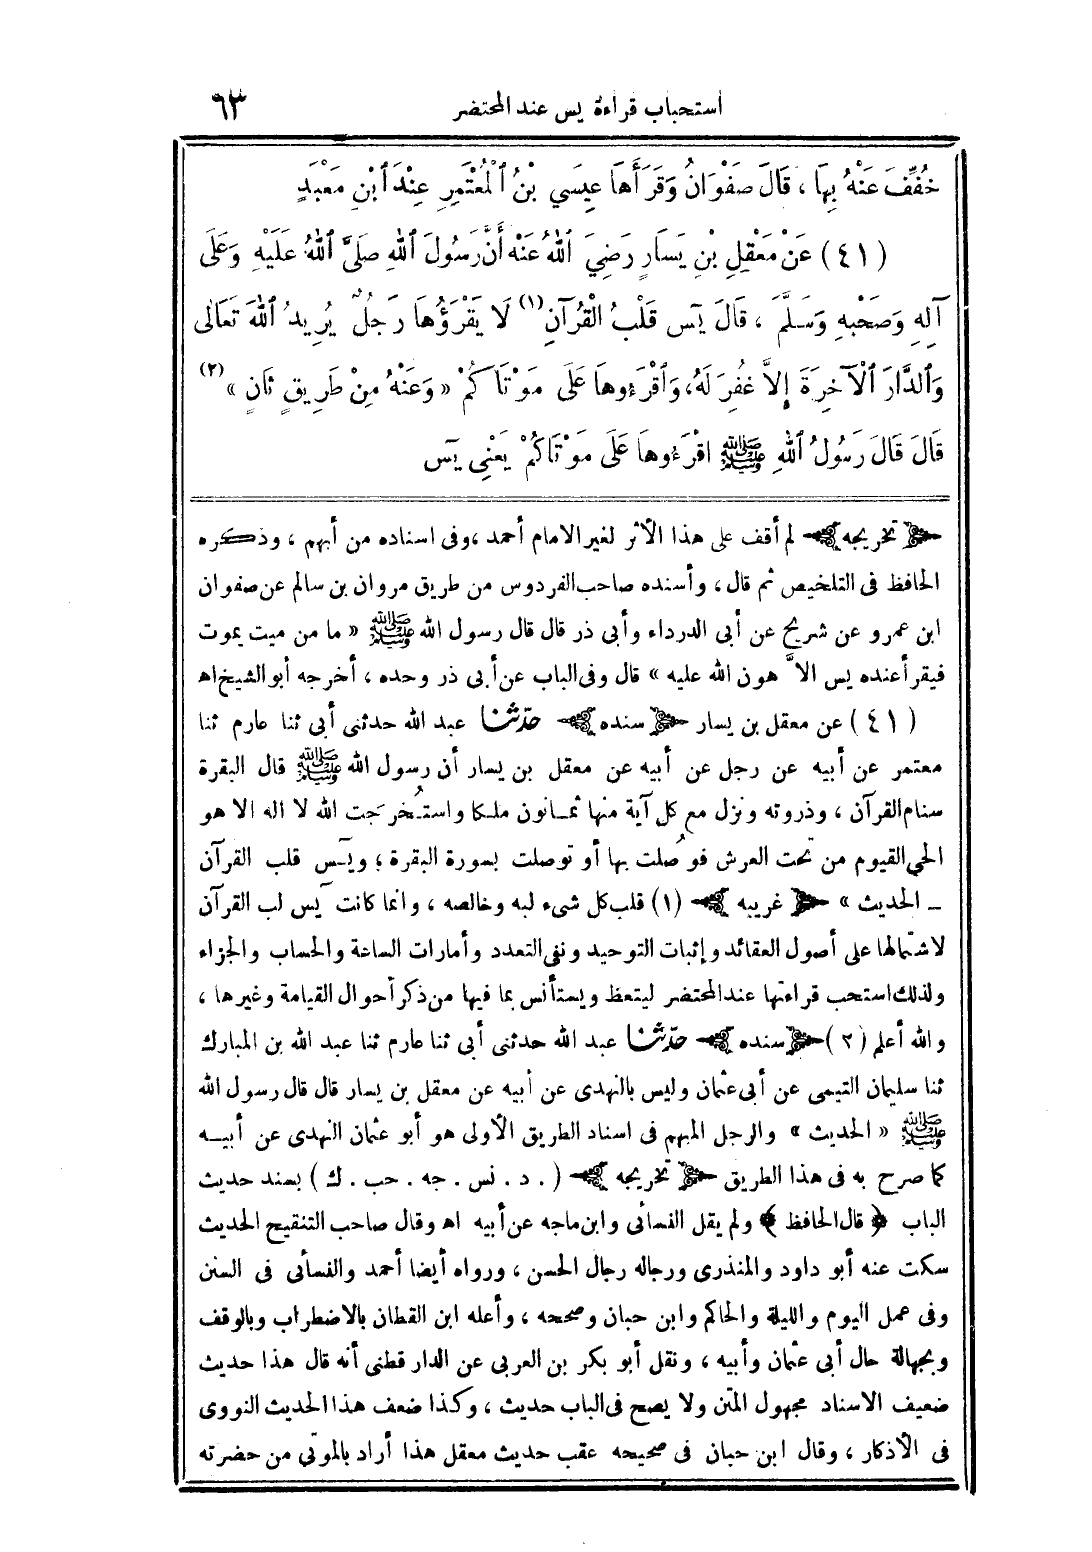 استحباب قراءة يس عند المحتضر ٦٣
خُفِّفَ عَنْهُ بِهَا ، قَالَ صَفْوَانُ وَقَرَأَهَا عِيسَي بْنُ ٱلْمُعْتَمِرِ عِنْدَ ٱبْنِ مَعْبَدٍ
(٤١) عَنْ مَعْقِلِ بْنِ يَسَارٍ رَضِيَ ٱللهُ عَنْهُ أَنَّ رَسُولَ ٱللهِ صَلَّى ٱللهُ عَلَيْهِ وَعَلَى
آلِهِ وَصَحْبِهِ وَسَلَّمَ ، قَالَ يٓس قَلْبُ الْقُرْآنِ (١) لَا يَقْرَؤُهَا رَجُلٌ يُرِيدُ ٱللهَ تَعَالَى
وَٱلدَّارَ ٱلْآخِرَةَ إِلاَّ غُفِرَ لَهُ، وَٱقْرَءُوهَا عَلَى مَوْتَاكُمْ « وَعَنْهُ مِنْ طَرِيقٍ ثَانٍ » (٢)
قَالَ قَالَ رَسُولُ ٱللهِ ﷺ اقْرَءُوهَا عَلَى مَوْتَاكُمْ يَعْنِي يٓس
﴿ تخريجه ﴾ لم أقف على هذا الأثر لغير الامام أحمد ، وفى اسناده من أبهم ، وذكره
الحافظ فى التلخيص ثم قال ، وأسنده صاحب الفردوس من طريق مروان بن سالم عن صفوان
ابن عمرو عن شريح عن أبى الدرداء وأبى ذر قال قال رسول الله ﷺ « ما من ميت يموت
فيقرأ عنده يس الاَّ هون الله عليه » قال وفى الباب عن أبى ذر وحده ، أخرجه أبو الشيخ اه
(٤١) عن معقل بن يسار ﴿ سنده ﴾ حدّثنا عبد الله حدثنى أبى ثنا عارم ثنا
معتمر عن أبيه عن رجل عن أبيه عن معقل بن يسار أن رسول الله ﷺ قال البقرة
سنام القرآن ، وذروته ونزل مع كل آية منها ثمـانون ملـكا واستُـخرجت الله لا اله الا هو
الحي القيوم من تحت العرش فوُصلت بها أو توصلت بسورة البقرة ؛ ويٓس قلب القرآن
ــ الحديث » ﴿ غريبه ﴾ (١) قلب كل شىء لبه وخالصه ، وانما كانت يٓس لب القرآن
لاشتمالها على أصول العقائد وإثبات التوحيد ونفى التعدد وأمارات الساعة والحساب والجزاء
ولذلك استحب قراءتها عند المحتضر ليتعظ ويستأنس بما فيها من ذكر أحوال القيامة وغيرها ،
والله أعلم (٢) ﴿ سنده ﴾ حدّثنا عبد الله حدثنى أبى ثنا عارم ثنا عبد الله بن المبارك
ثنا سليمان التيمى عن أبى عثمان وليس بالنهدى عن أبيه عن معقل بن يسار قال قال رسول الله
ﷺ « الحديث » والرجل المبهم فى اسناد الطريق الأولى هو أبو عثمان النهدى عن أبيـه
كما صرح به فى هذا الطريق ﴿ تخريجه ﴾ ( . د . نس . جه . حب . ك ) بسند حديث
الباب ﴿ قال الحافظ ﴾ ولم يقل النسائى وابن ماجه عن أبيه اه وقال صاحب التنقيح الحديث
سكت عنه أبو داود والمنذرى ورجاله رجال الحسن ، ورواه أيضا أحمد والنسائى فى السنن
وفى عمل اليوم والليلة والحاكم وابن حبان وصححه ، وأعله ابن القطان بالاضطراب وبالوقف
وبجهالة حال أبى عثمان وأبيه ، ونقل أبو بكر بن العربى عن الدار قطنى أنه قال هذا حديث
ضعيف الاسناد مجهول المتن ولا يصح فى الباب حديث ، وكذا ضعف هذا الحديث النووى
فى الأذكار ، وقال ابن حبان فى صحيحه عقب حديث معقل هذا أراد بالموتى من حضرته